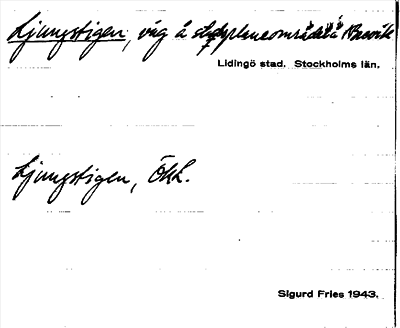 Ljungstigen, väg å stadsplaneområdet å Brevik
Lidingö stad. Stockholms län.
Ljungstigen, Ökk.
Sigurd Fries 1943.